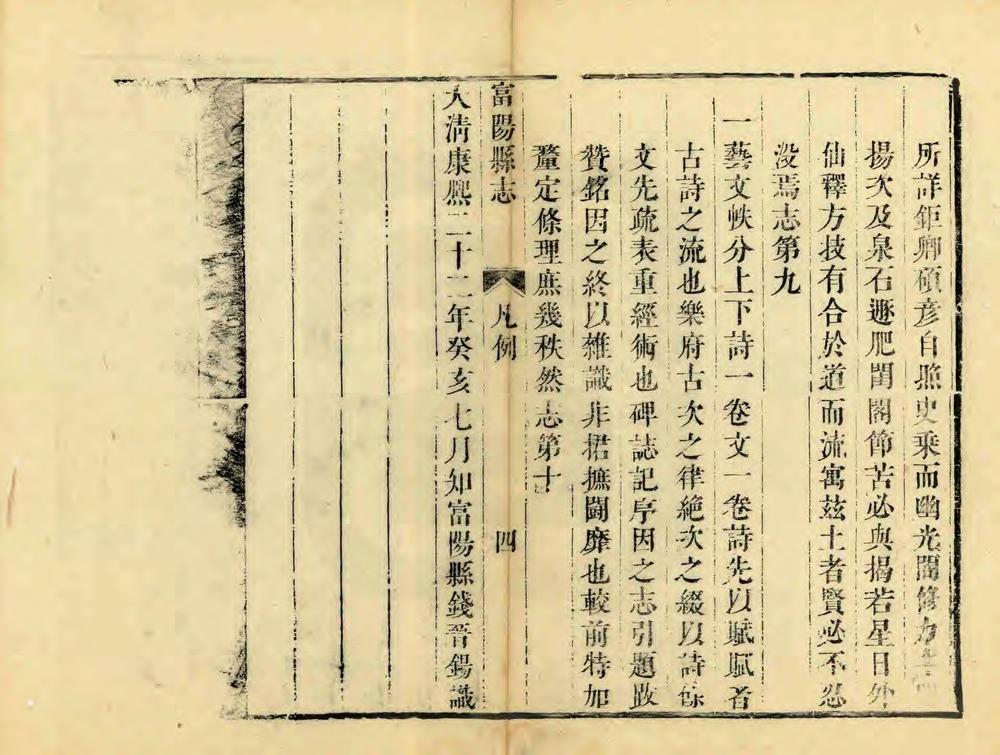 所詳鉅卿碩彥自照史乘而幽光闇修
揚次及泉石遯肥閨閣節苦必與揭若星日外
仙釋方技有合於道而流寓茲土者賢必不忍
没焉志第九
一藝文帙分上下詩一卷文一卷詩先以賦賦者
古詩之流也樂府古次之律絶次之綴以詩餘
文先疏表重經術也碑誌記序因之志引題跋
贊銘因之終以雜識非捃摭鬪靡也較前特加
釐定條理庶幾秩然志第十
富陽縣志 凡例 四
大清康熙二十二年癸亥七月知富陽縣錢晋錫識